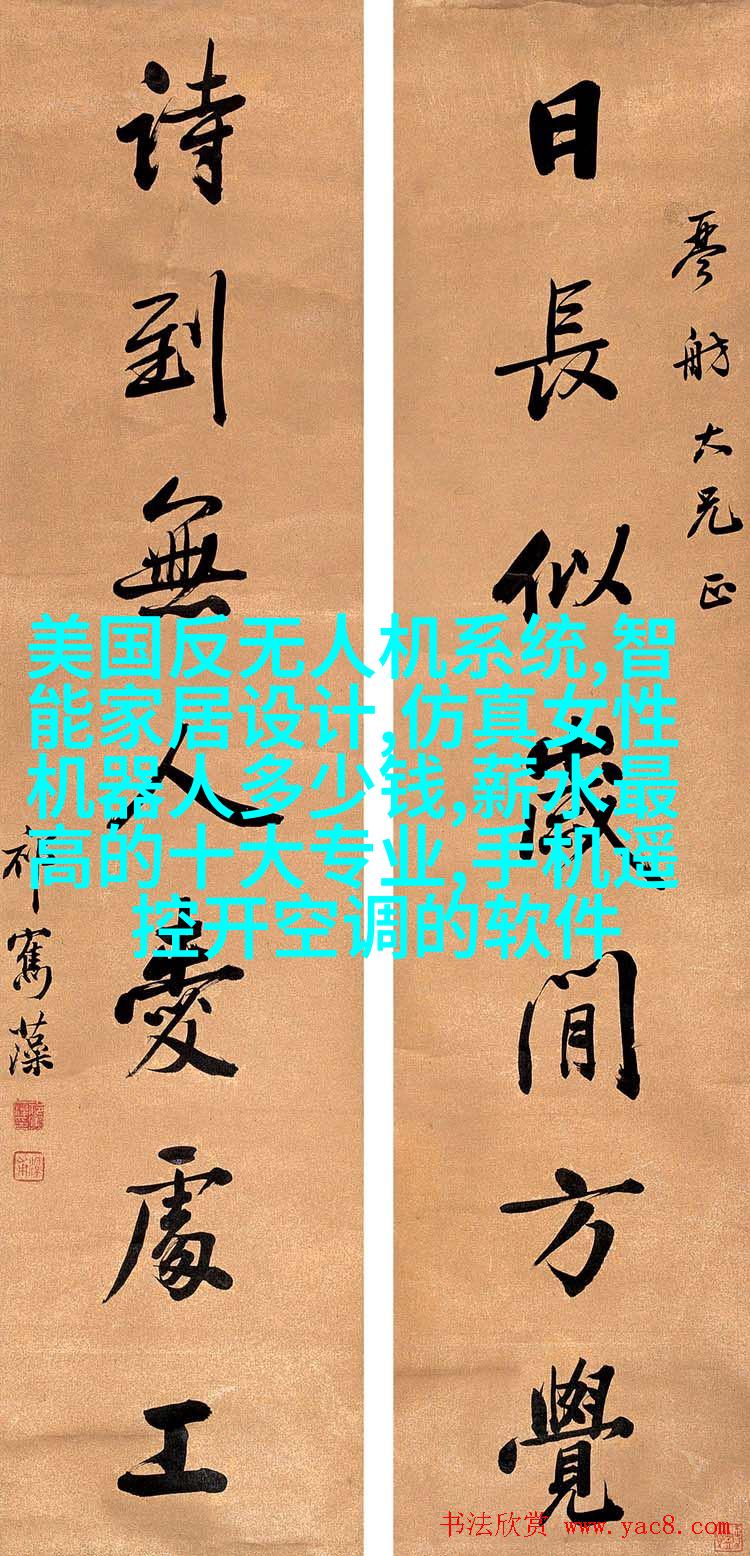 琴舫大兄正
日長似歲閒方覺
詩到無人愛處工
祁寯藻
美国反无人机系统,智
能家居设计,仿真女性
机器人多少钱,薪水最
高的十大专业,手机遥
控开空调的软件
书法欣赏 www.yac8.com